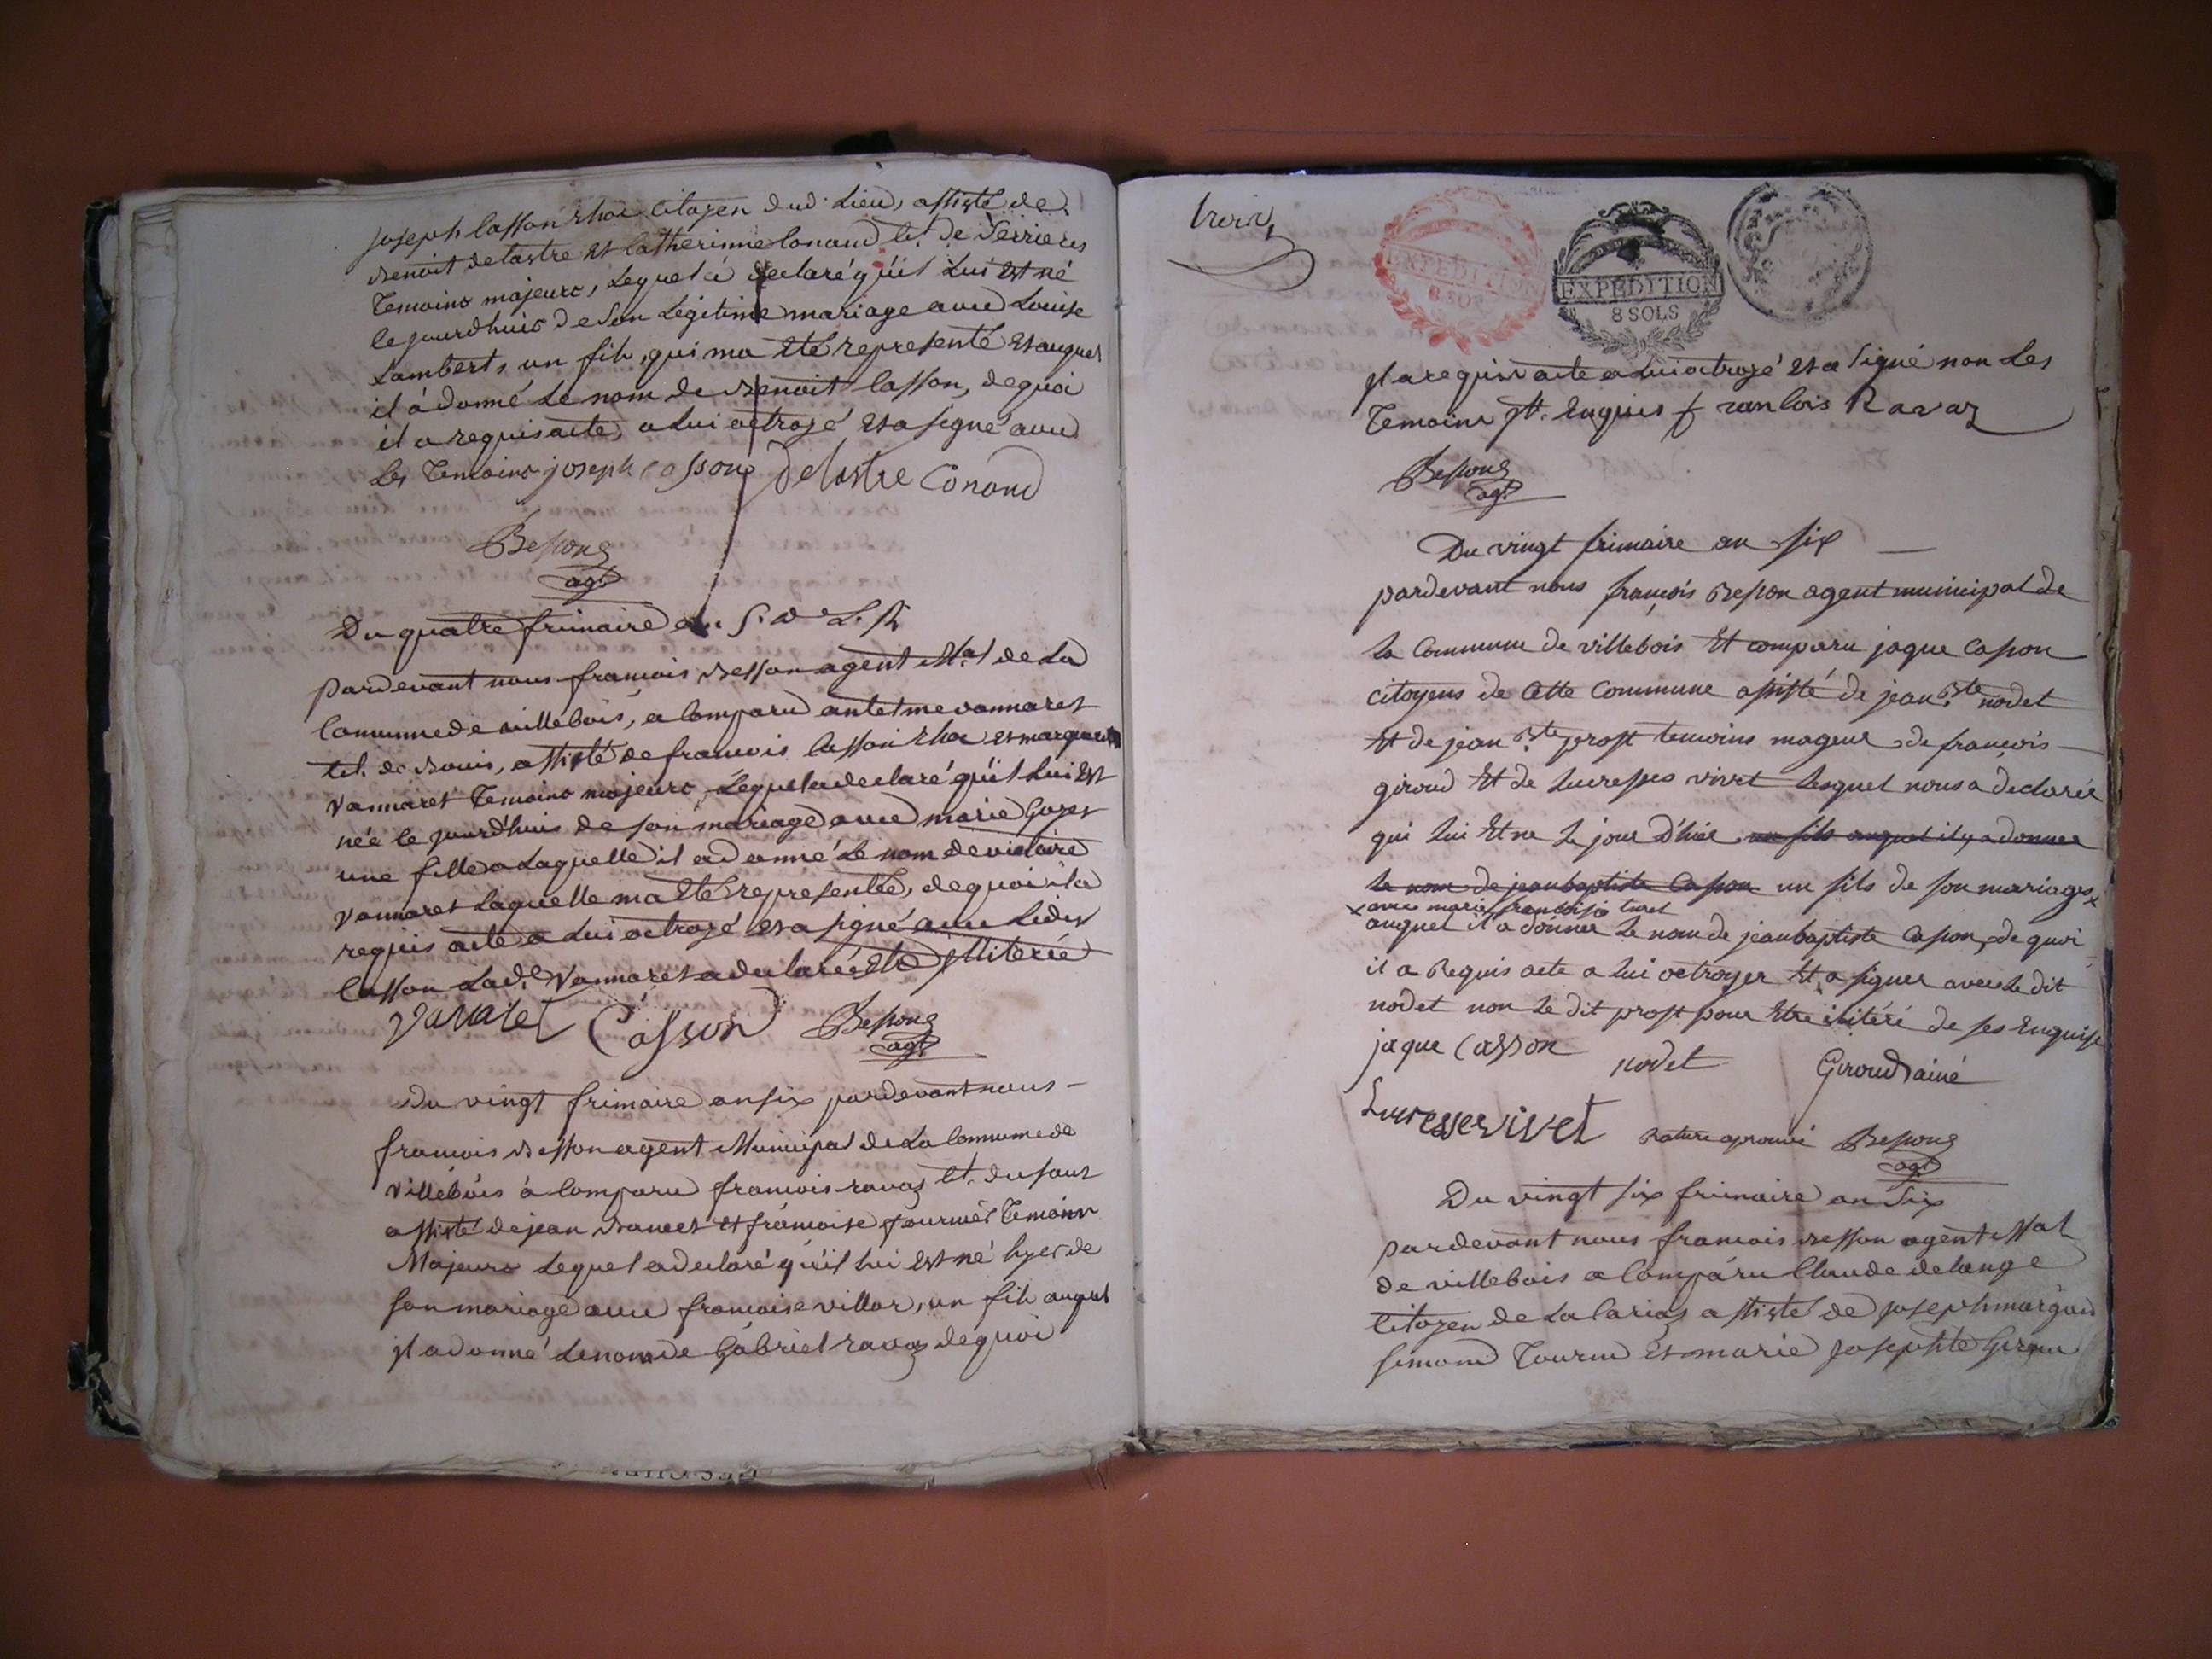 joseph Casson Rhoe citoyen dud. Lieu, assisté de
Benoit delastre et Catherinne Conand cit. de Serrieres
Temoins majeurs, Lequel à declaré qu'il Lui est né
le jourdhuis de son Légitime mariage avec Louise
Lambert, un fils, qui ma été representé et auquel
il à donné Le nom de Benoit Casson, de quoi
il a requis acte, a Lui octroyé et a signé avec
Les Temoins joseph casson Delastre Conand
Bessong
agt
Du quatre frimaire an
pardevant nous francois Besson agent Mal de La
Commune de villebois, a Comparu antelme vannaret
cit. de Bouis, assisté de francois Casson Rhoe et marguerite
vannaret Temoins majeurs, Lequel a declaré qu'il Lui Est
née le jourd'huis de son mariage avec marie Gozet
une fille a Laquelle il a donné Le nom de victoire
vannaret Laquelle ma été representée, de quoi il a
requis acte a Lui octroyé et a signé avec Ledit
Casson Lade. Vannaret a declaré Etre jlliterée
Vanaret Casson Bessong
agt
Du vingt frimaire an six pardevant nous
francois Besson agent Municipal de La Commune de
villebois à Comparu francois ravaz cit. du saut
assisté de jean Bancet et francoise fournier Temoins
Majeurs Lequel a declaré qu'il lui est né hyer de
son mariage avec francoise villar, un fils auquel
jl a donné Le nom de Gabriel ravaz de quoi
EXPEDITION
8 SOLS
EXPEDITION
8 SOLS
jl a requis acte a Lui octroyé et a signé non Les
Temoins jtt. Enquis francois Ravaz
Bessong
agt
Du vingt frimaire an six
pardevant nous françois Besson agent municipal de
la Commune de villebois Et comparu jaque Casson
citoyens de Cette Commune assisté de jean Bte nodet
Et de jean Bte prost temoins mageur de françois
giroud Et de Lucresses vivet Lesquel nous a declarée
qui lui Et né Le jour D'hiér un fils auquel il y a donner
le nom de jean baptiste Casson un fils de son mariages x
x avec marie francoise turel
auquel il a donner Le nom de jean baptiste Casson, de quoi
il a Requis acte a lui octroyer Et a signer avec Le dit
nodet non Le dit prost pour Etre ilitéré de ses Enquise
jaque Casson nodet Giroud ainé
Lucresse vivet Rature aprouvé Bessong
agt
Du vingt six frimaire an Six
pardevant nous francois Besson agent Mal
de villebois a Comparu Claude delange
citoyen de La Cariaz assisté de joseph marguerite
simond Tournu et marie josephte Giroud